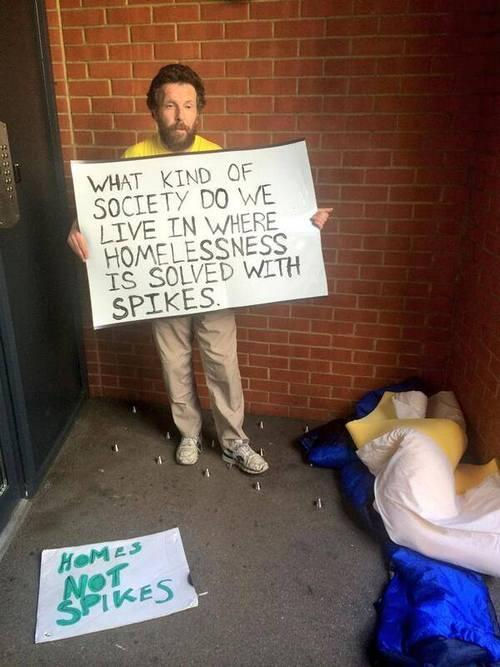 WHAT KIND OF
SOCIETY DO WE
LIVE IN WHERE
HOMELESSNESS
IS SOLVED WITH
SPIKES.
HOMES
NOT
SPIKES